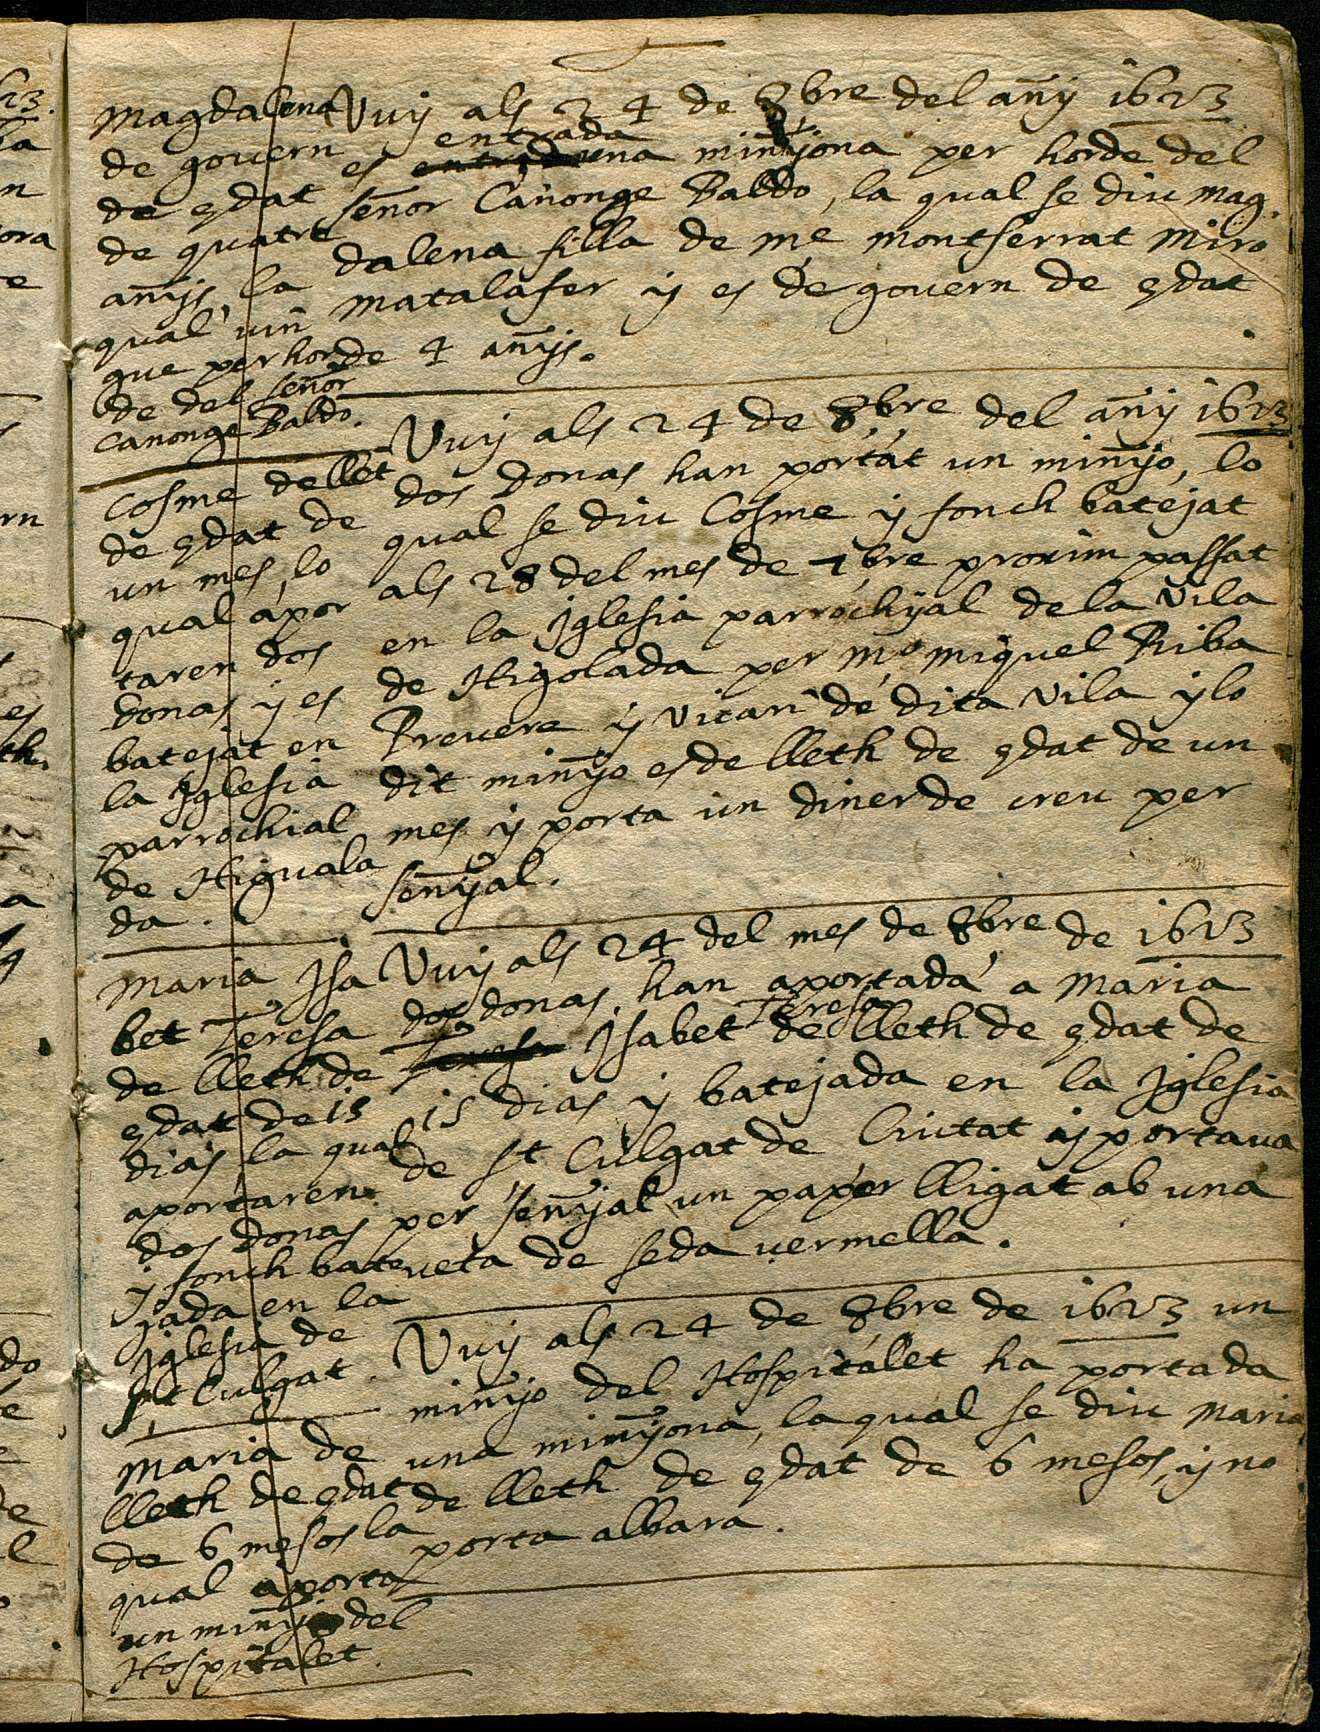 Magdalena
de govern
de edat
de quatre
añys, la
qual vin
gue per hor
de del señor
Canonge Baldo.
Vuy als 24 de 8bre del añy 1623
es entrada una minyona per horde del
señor Canonge Baldo, la qual se diu Mag
dalena filla de me montserrat Miro
Matalafer y es de govern de edat
de 4 añys.
Cosme de llet
de edat de
un mes, lo
qual apor
taren dos
Donas y es
batejat en
la Jglesia
parrochial
de Higuala
da.
Vuy als 24 de 8bre del añy 1623
dos Donas han portat un minyo, lo
qual se diu Cosme y fonch batejat
als 28 del mes de 7bre proxim passat
en la Jglesia parrochyal de la Vila
de Higolada per Mo Miquel Riba
Prevere y Vicari de dita Vila y lo
dit minyo es de lleth de edat de un
mes y porta un diner de creu per
señyal.
Maria Jsa
bet Teresa
de lleth de
edat de 15
dias la qual
aportaren
dos donas
y fonch bate
jada en la
Jglesia de
St Culgat.
Vuy als 24 del mes de 8bre de 1623
dos donas han aportada a Maria
Jsabet Teresa de lleth de edat de
15 dias y batejada en la Jglesia
de St Culgat de Ciutat y portava
per señyal un paper lligat ab una
veta de seda vermella.
Maria de
lleth de edat
de 6 mesos la
qual aporta
un minyo del
Hospitalet.
Vuy als 24 de 8bre de 1623 un
minyo del Hospitalet ha portada
una minyona, la qual se diu Maria
de lleth de edat de 6 mesos, y no
porta albara.